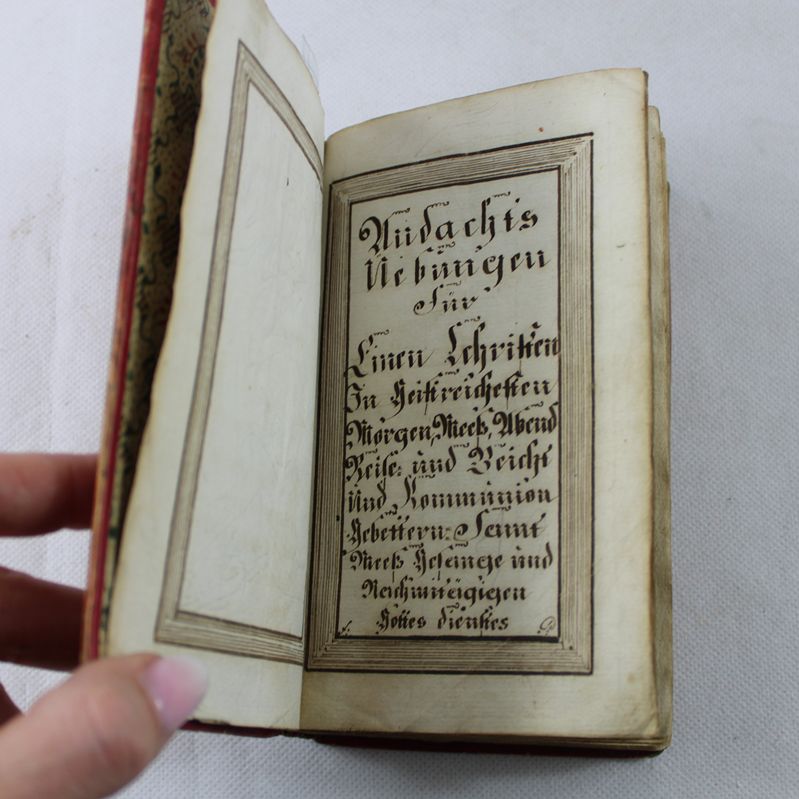 Andachts
Uebungen
Für
Einen Christen
In Geistreichesten
Morgen, Meeß, Abend
Reise: und Beicht
Und Kommunion
Gebettern: Samt
Meeß Gesange und
Nachmitägigen
Gottes dienstes